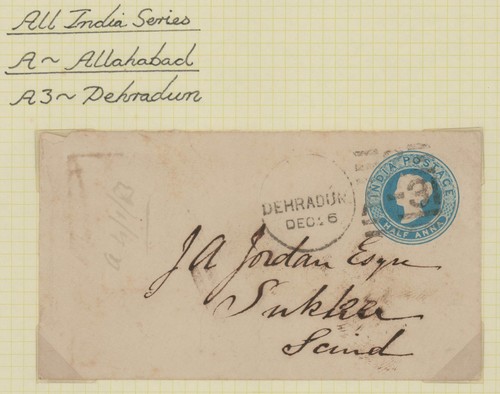 All India Series
A~ Allahabad
A3~ Dehradun
INDIA POSTAGE
HALF ANNA
DEHRADUN
DEC: 6
J A Jordan Esqre
Sukkur
Scind